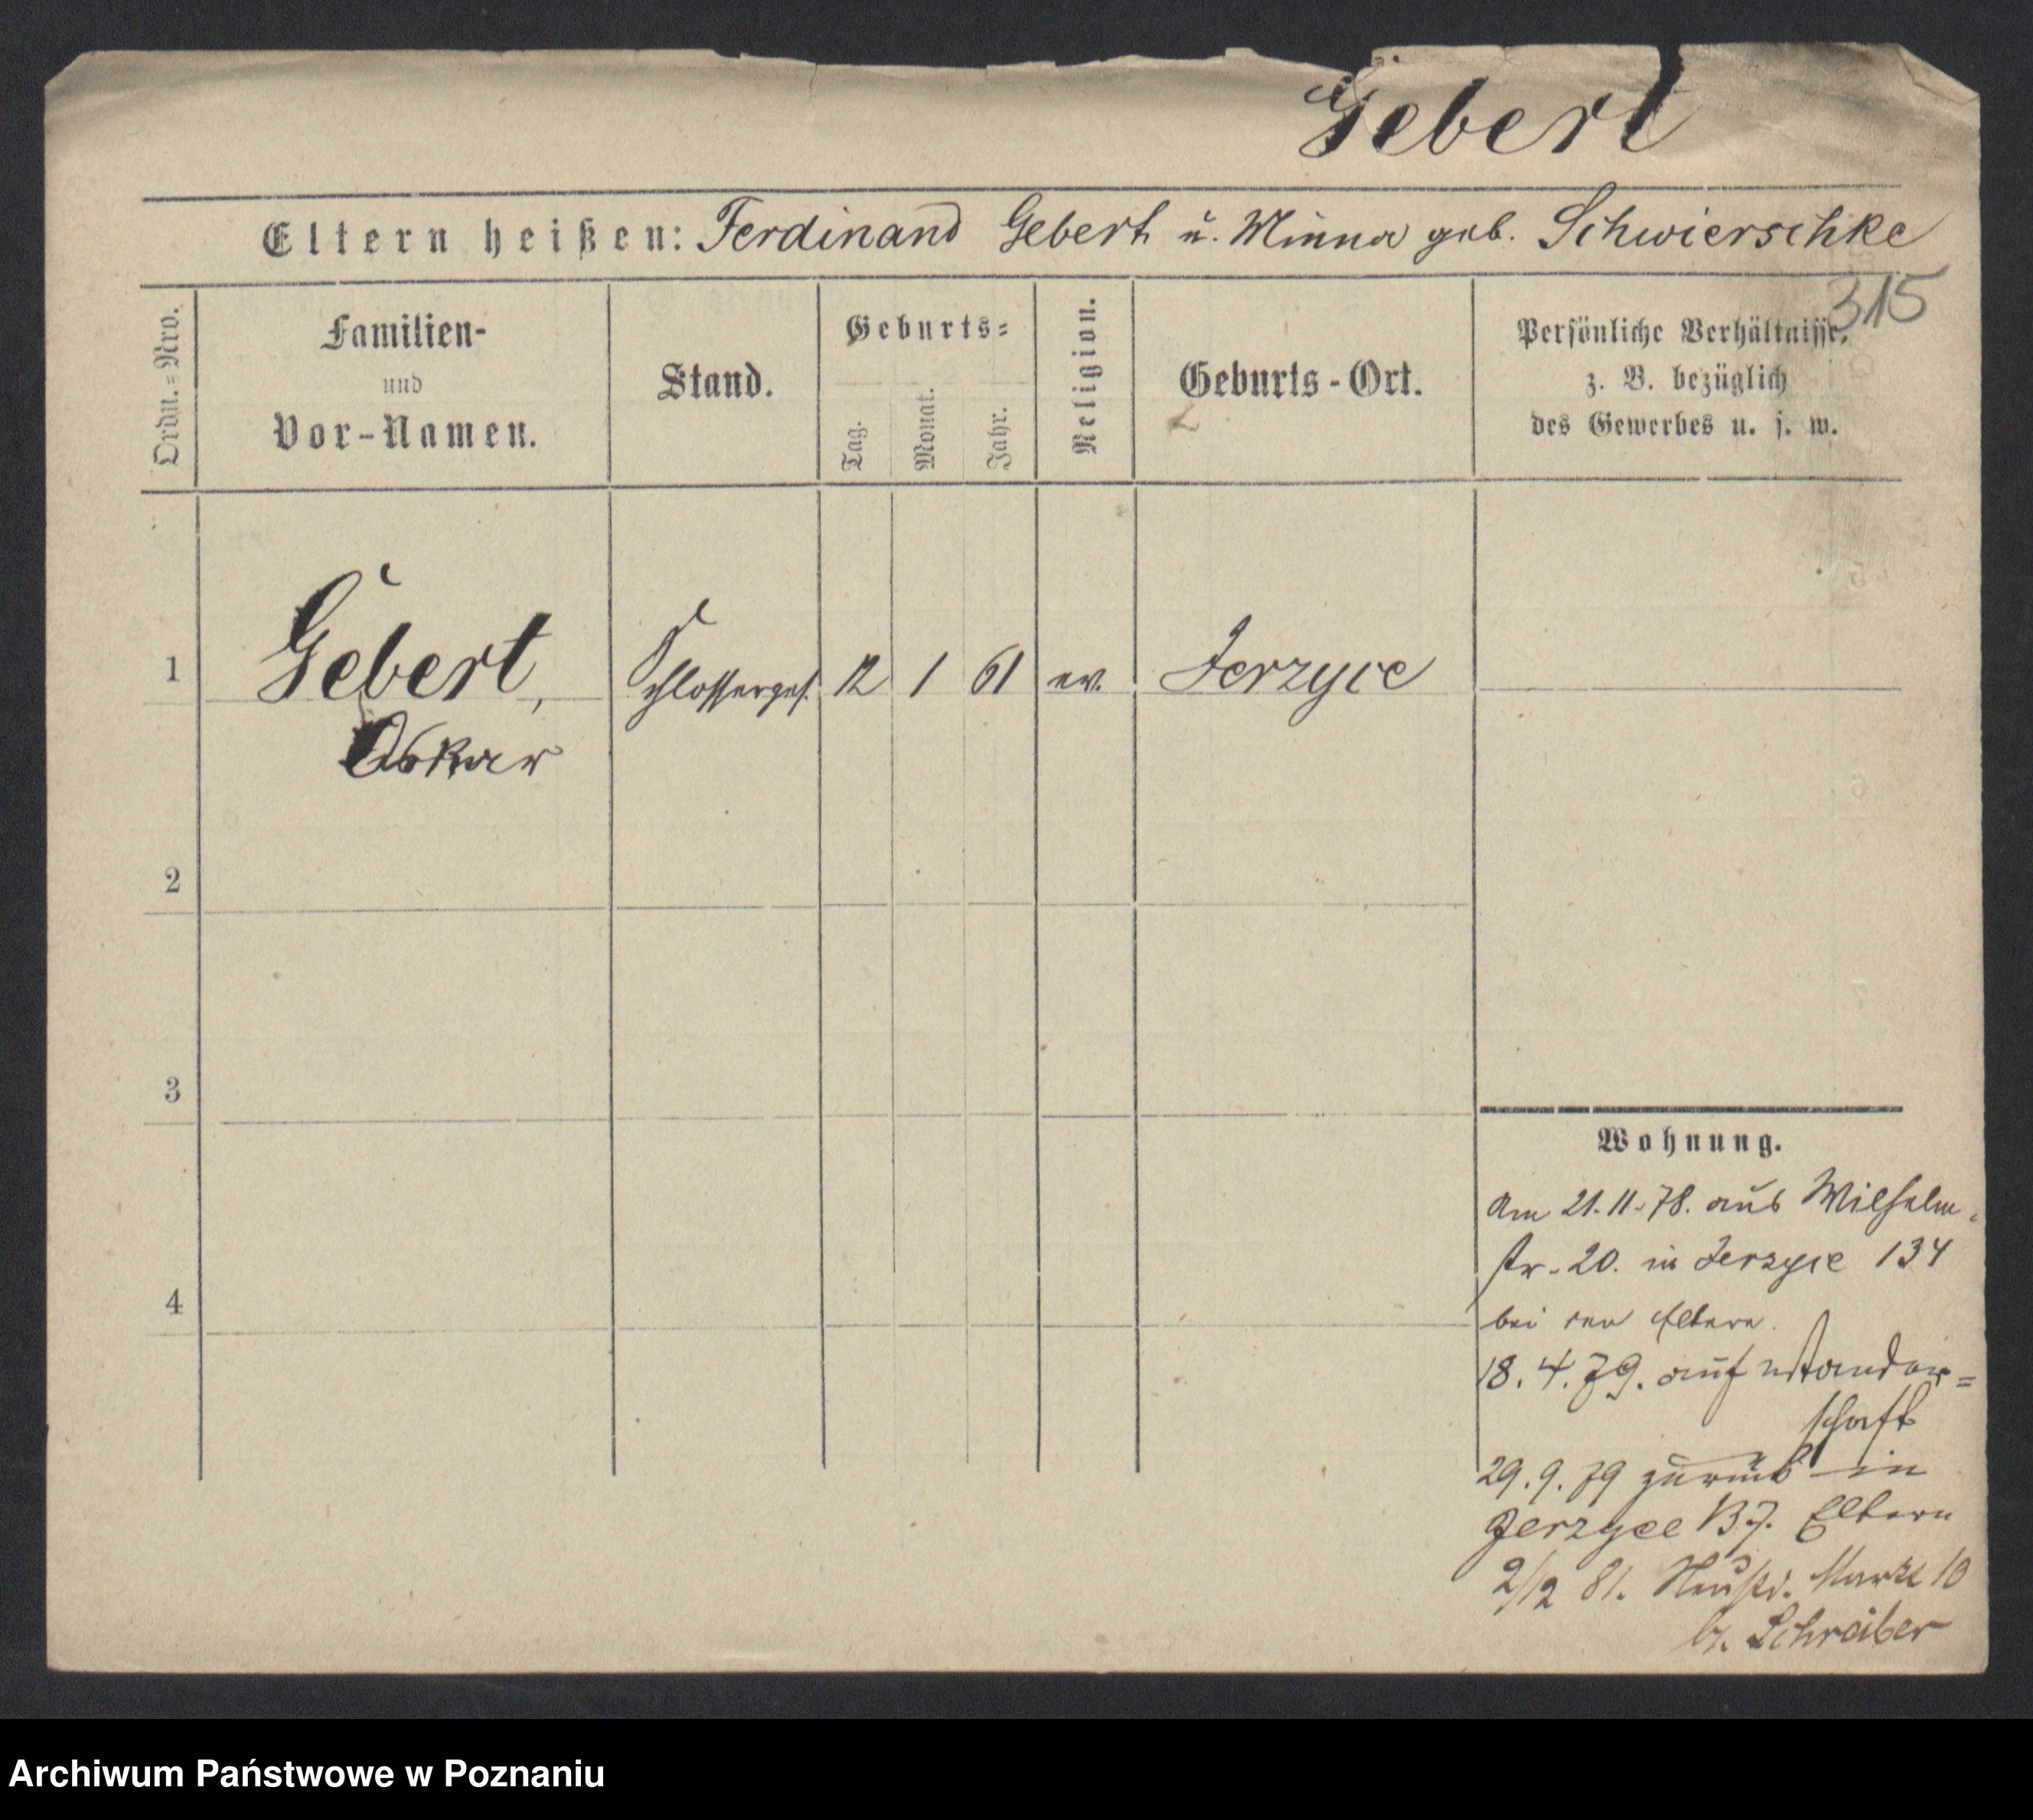 Gebert
Eltern heißen: Ferdinand Gebert u. Minna geb. Schwierschke
315
Ordn.=Nro.
Familien-
und
Vor-Namen.
Stand.
Geburts=
Tag.
Monat.
Jahr.
Religion.
Geburts-Ort.
Persönliche Verhältnisse,
z. B. bezüglich
des Gewerbes u. s. w.
1 Gebert, Schlosserges. 12 1 61 ev. Jerzyce
Oskar
2
3
4
Wohnung.
Am 21.11.78. aus Wilhelm-
str. 20. in Jerzyce 134
bei den Eltern.
18.4.79. auf Wander=
schaft
29.9.79 zurück in
Jerzyce Eltern
2/12 81. Neust. Markt 10
b. Schreiber
Archiwum Państwowe w Poznaniu